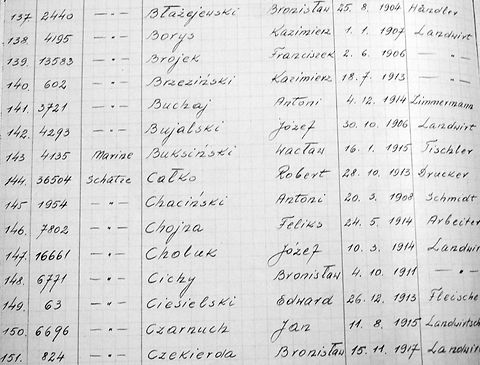 137. 2440 — " — Błażejewski Bronisław 25. 8. 1904 Händler
138. 4195 — " — Borys Kazimierz 1. 1. 1907 Landwirt
139. 13583 — " — Brojek Franciszek 2. 6. 1906 — " —
140. 602 — " — Brzeziński Kazimierz 18. 7. 1913 — " —
141. 3721 — " — Buchaj Antoni 4. 12. 1914 Zimmermann
142. 4293 — " — Bujalski Józef 30. 10. 1906 Landwirt
143 4135 Marine Buksiński Wacław 16. 1. 1915 Tischler
144. 36504 Całko Robert 28. 10. 1913 Drucker
145 1954 — " — Chaciński Antoni 20. 3. 1908 Schmidt
146. 7802 — " — Chojna Feliks 24. 5. 1914 Arbeiter
147. 16661 — " — Józef 10. 3. 1914 Landwirt
148. 6771 — " — Cichy Bronisław 4. 10. 1911 — " —
149. 63 — " — Ciesielski Edward 26. 12. 1913 Fleische
150. 6696 — " — Czarnuch Jan 11. 8. 1915 Landwirtsc
151. 824 — " — Czekierda Bronisław 15. 11. 1917 Landwirt